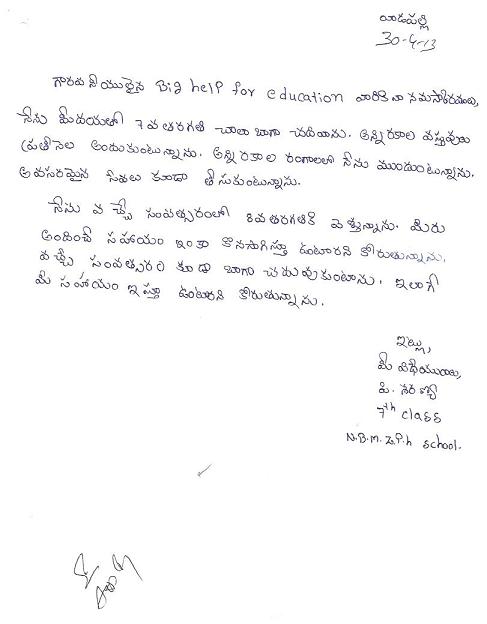 వాడపల్లి
30-4-13
గౌరవనీయులైన Big help for education వారికి నా నమస్కారములు,
నేను మీదయతో 7వతరగతి చాలా బాగా చదివాను. అన్నిరకాల వస్తువులు
ప్రతినెల అందుకుంటున్నాను. అన్నిరకాల రంగాలలో నేను ముందుంటున్నాను.
అవసరమైన సేవలు కూడా తీసుకుంటున్నాను.
నేను వచ్చే సంవత్సరంలో 8వతరగతికి వెళ్తున్నాను. మీరు
అందించే సహాయం ఇంకా కొనసాగిస్తూ ఉంటారని కోరుతున్నాను.
వచ్చే సంవత్సరం కూడా బాగా చదువుకుంటాను. ఇలాగే
మీ సహాయం ఇస్తూ ఉంటారని కోరుతున్నాను.
ఇట్లు,
మీ విధేయురాలు,
పి.
7th class
N.B.M.Z.P.h school.